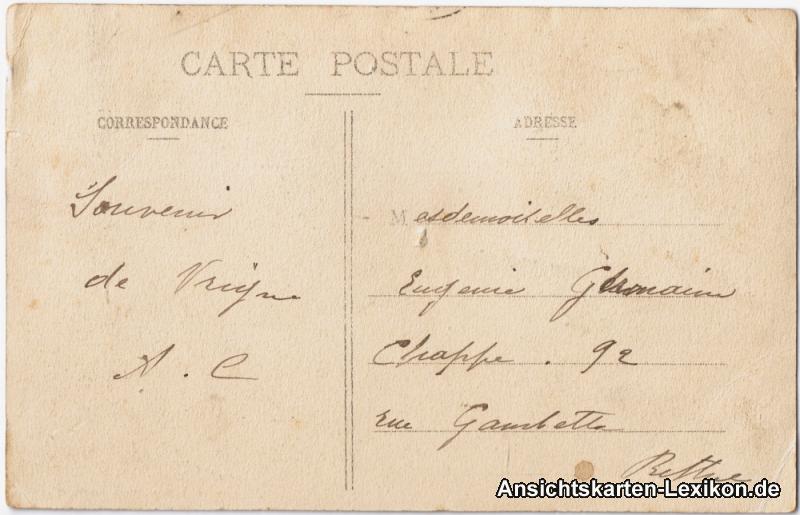 CARTE POSTALE
CORRESPONDANCE
Souvenir
de Vrigne
A. C
ADRESSE
Mesdemoiselles
Eugenie Germaine
Chappe. 92
rue Gambetta
Ansichtskarten-Lexikon.de